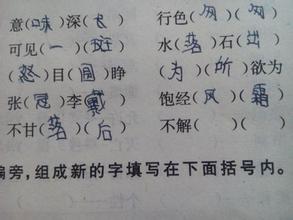 意(味)深(长) 行色(匆)(匆)
可见(一)(斑) 水(落)石(出)
(怒)目(圆)睁 (为)(所)欲为
张(冠)李(戴) 饱经(风)(霜)
不甘(落)(后) 不解( )( )
偏旁,组成新的字填写在下面括号内。